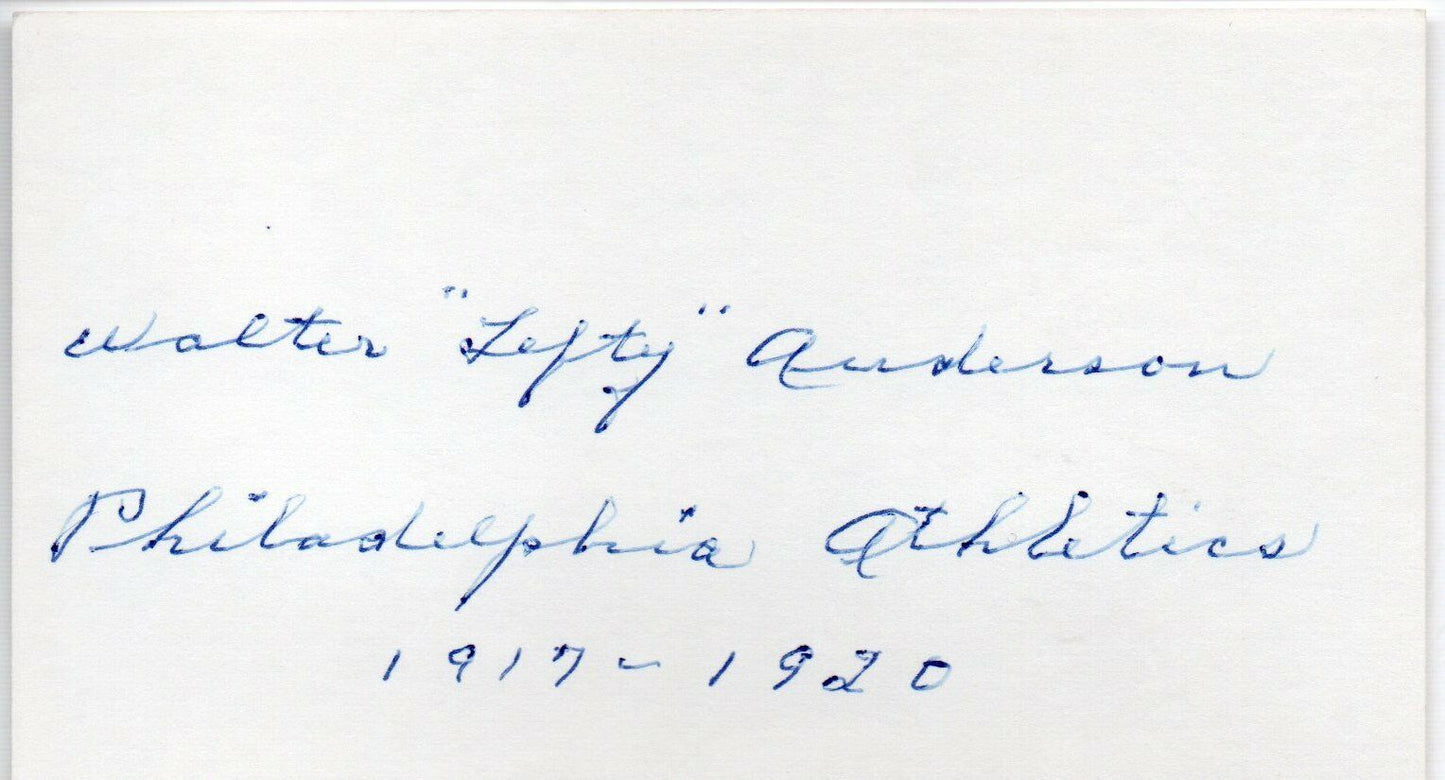 Walter "Lefty" Anderson
Philadelphia Athletics
1917-1920